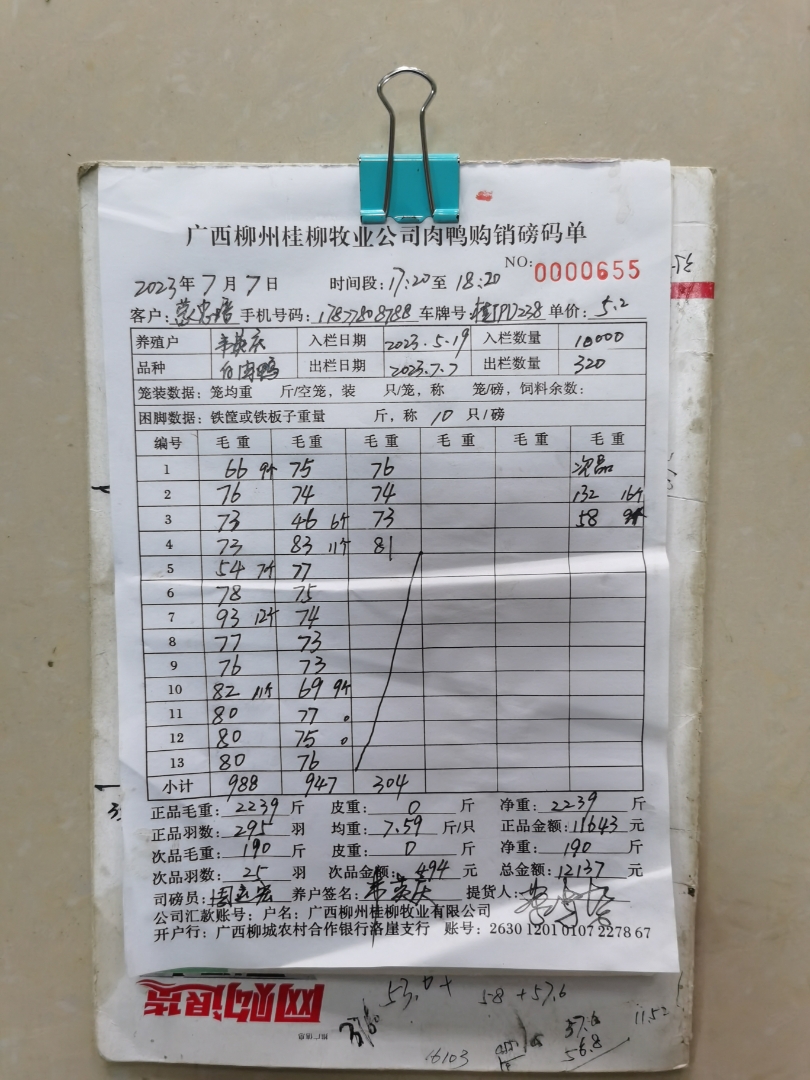 广西柳州桂柳牧业公司肉鸭购销磅码单
NO: 0000655
2023年7月7日 时间段:17:20至18:20
客户: 手机号码:17877808788 车牌号: 238 单价:5.2
养殖户 韦英庆 入栏日期 2023.5.19 入栏数量 10000
品种 白肉鸭 出栏日期 2023.7.7 出栏数量 320
笼装数据:笼均重 斤/空笼,装 只/笼,称 笼/磅,饲料余数:
困脚数据:铁筐或铁板子重量 斤,称 10 只/磅
编号 毛重 毛重 毛重 毛重 毛重 毛重
1 66 9个 75 76 次品
2 76 74 74 132 16个
3 73 46 6个 73 58 9个
4 73 83 11个 81
5 54 7个 77
6 78 75
7 93 12个 74
8 77 73
9 76 73
10 82 11个 69 9个
11 80 77
12 80 75
13 80 76
小计 988 947 304
正品毛重:2239斤 皮重:0斤 净重:2239斤
正品羽数:295羽 均重:7.59斤/只 正品金额:11643元
次品毛重:190斤 皮重:0斤 净重:190斤
次品羽数:25羽 次品金额:494元 总金额:12137元
司磅员: 养户签名:韦英庆 提货人:
公司汇款账号:户名:广西柳州桂柳牧业有限公司
开户行:广西柳城农村合作银行洛崖支行 账号:2630 1201 0107 2278 67
网购退货
58+57.6
11.52
37.6
56.8
6103